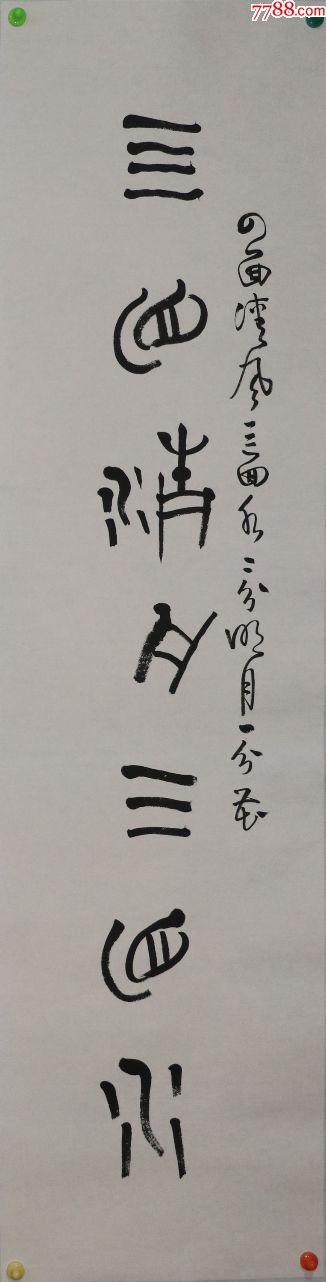 7788.com
四面清风三面水二分明月一分花
四面清风三面水